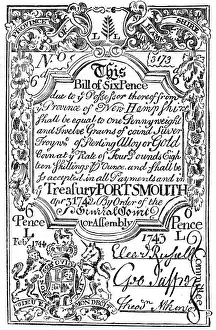 PROVINCE OF NEW HAMPSHIRE
L L
No
3173
This
Bill of Six Pence
due to ye Possessor thereof from
ye Province of New Hampshire
shall be equal to one Pennyweight
and Twelve Grains of coind Silver
Troy wt of Sterling Alloy or Gold
Coin at ye Rate of Four Pounds Eigh
teen Shillings ye Ounce, and shall be
so accepted in all Payments and in ye
Treasury PORTSMOUTH
Apr 3 1742 By Order of the
General Court
or Assembly
6 6
Pence Pence
L L
Feb 1743
DIEU ET MON DROIT